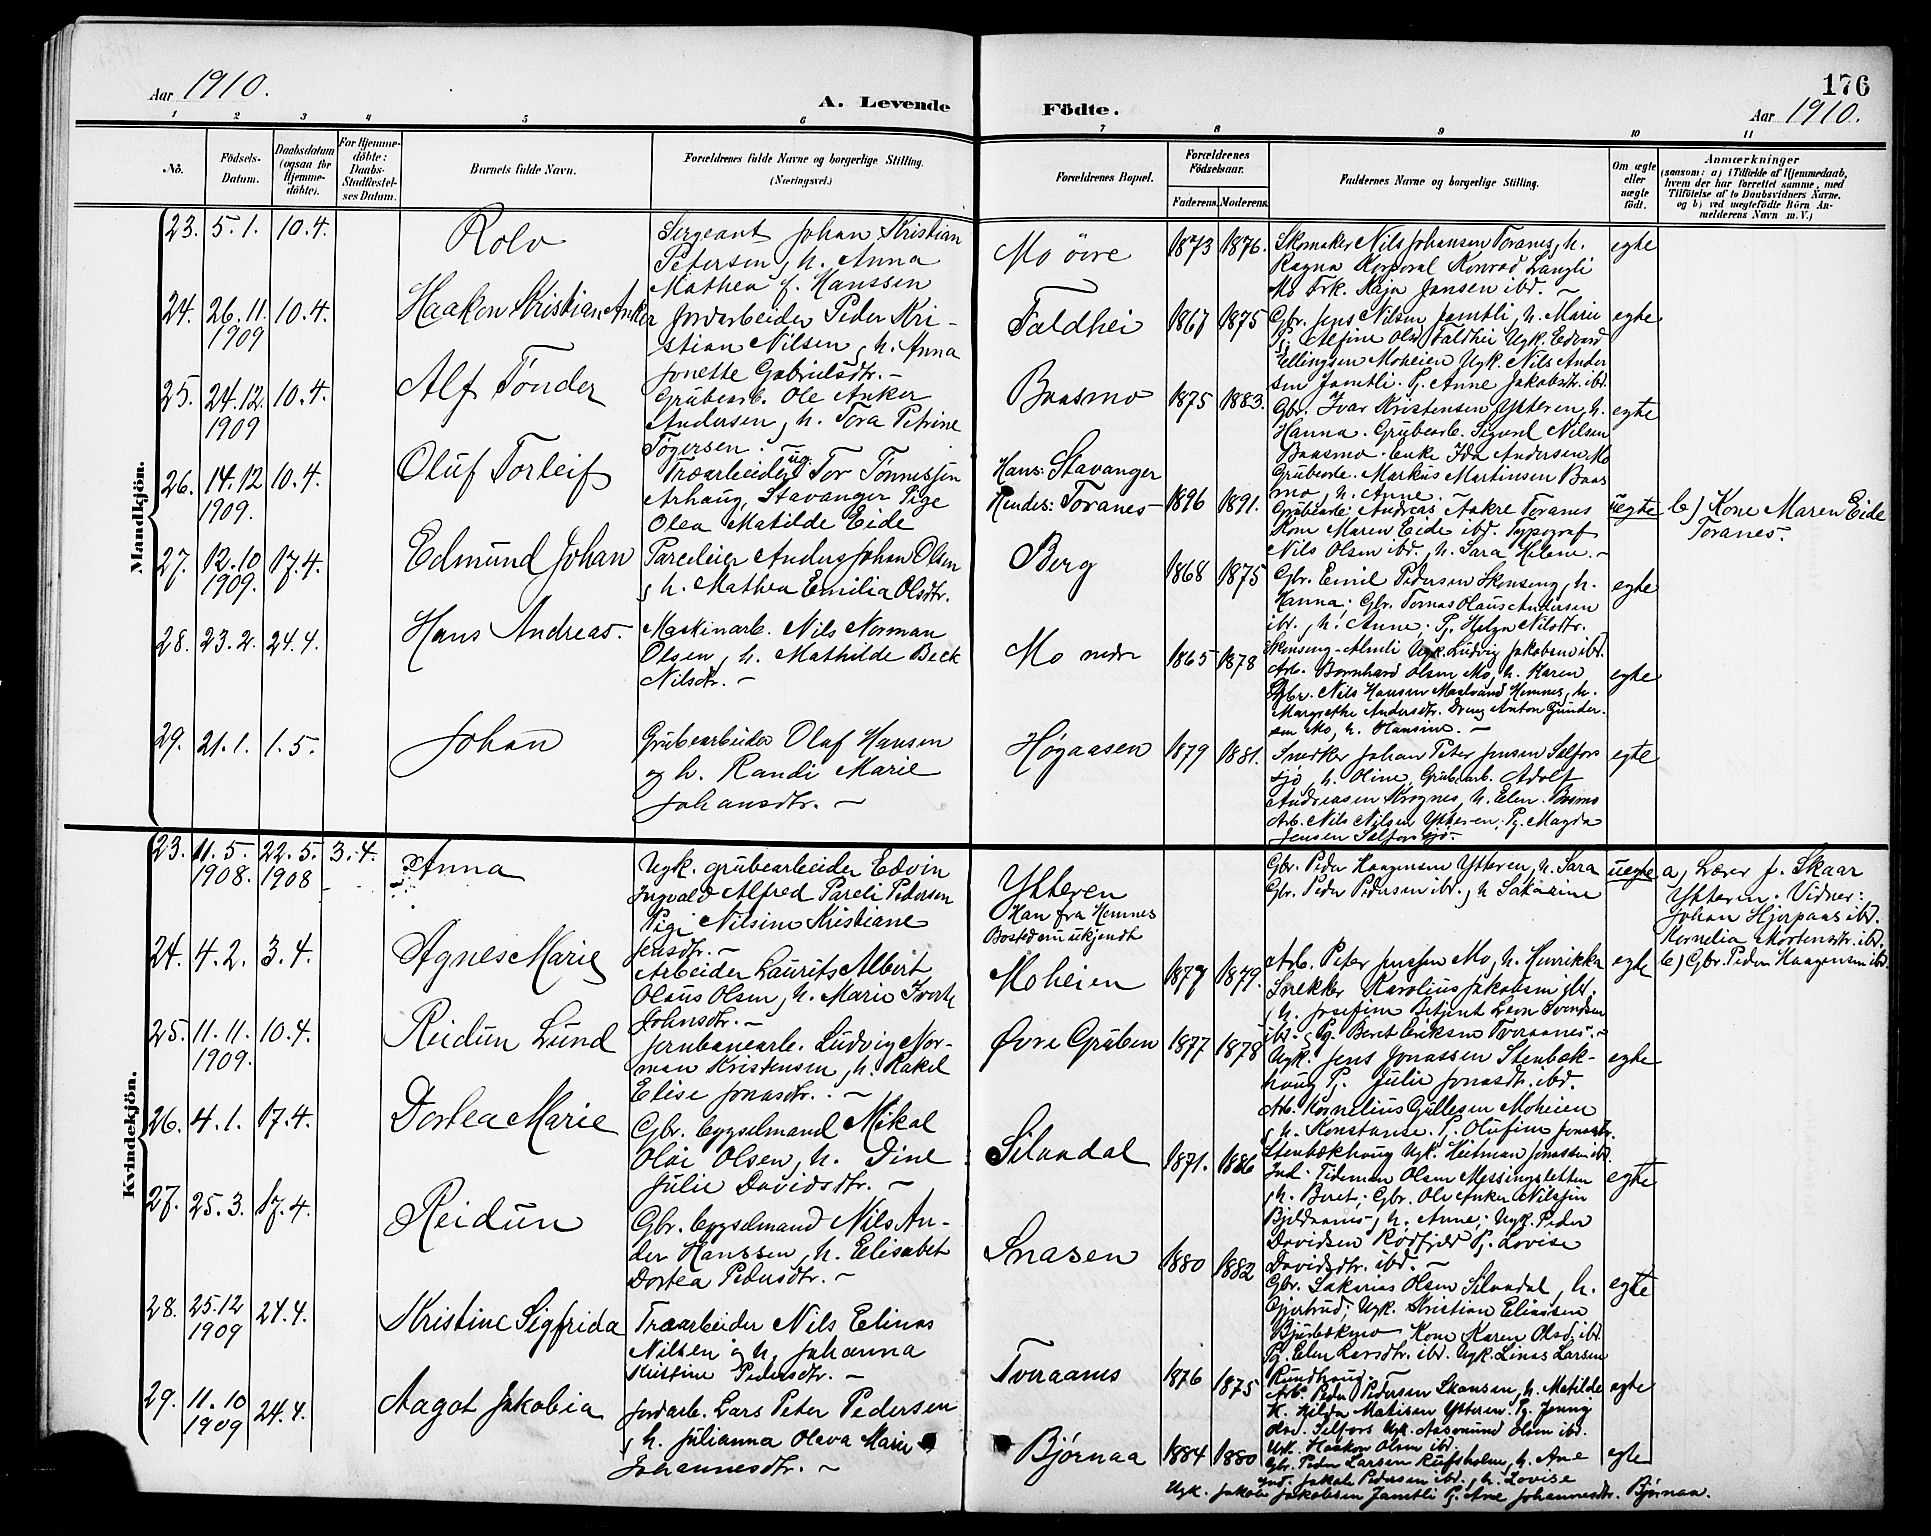 Aar 1910.
A. Levende Födte.
176
Aar 1910.
1 2 3 4 5 6 7 8 9 10 11
No.
Födsels-
Datum.
Daabsdatum
(ogsaa for
Hjemme-
döbte).
For Hjemme-
döbte:
Daabs-
Stadfæstel-
ses Datum.
Barnets fulde Navn.
Forældrenes fulde Navne og borgerlige Stilling.
(Næringsvei.)
Forældrenes Bopæl.
Forældrenes
Födselsaar.
Faderens. Moderens.
Faddernes Navne og borgerlige Stilling.
Om ægte
eller
uægte
födt.
Anmærkninger
(saasom: a) i Tilfælde af Hjemmedaab,
hvem der har forrettet samme, med
Tilföielse af to Daabsvidners Navne.
og b) ved uægtefödte Börn An-
melderens Navn m. V.)
Mandkjön.
23. 5.1. 10.4.
Rolv
Sergeant Johan Kristian
Petersen, h. Anna
Mathea f. Hanssen
Mo övre
1873 1876.
Skomaker Nils Johansen Toranes, h.
Ragna Korporal Konrad Langli
Mo Frk. Kaja Jansen ibd. –
egte
24. 26.11 10.4.
1909
Haakon Kristian Anker
Jordarbeider Peder Kri-
stian Nilsen, h. Anna
Jonette Gabrielsdtr. –
Faldhei
1867 1875
Gbr. Jens Nilsen Jamtli, h. Marie
Pj. Alfine Olsd Faldhei Ugk. Edvard
Ellingsen Moheien Ugk. Nils Ander
sen Jamtli. Pj. Anne Jakobsdtr. ibd.
egte
25. 24.12. 10.4.
1909
Alf Tönder
Grubearb. Ole Anker
Andersen, h. Tora Petrine
Tögersen. –
Baasmo
1875 1883.
Gbr. Ivar Kristensen Ytteren, h.
Hanna. Grubearb. Sigurd Nilsen
Baasmo. Enke Ida Andersen Mo
Grubearb. Markus Martinsen Baas
mo, h. Anne. –
egte
26. 14.12 10.4.
1909.
Oluf Torleif
Træarbeider ug. Tor Tönnessen
Arhaug, Stavanger Pige
Olea Matilde Eide
Hans: Stavanger
Hendes: Toranes –
1896 1891.
Grubearb. Andreas Aakre Toranes
Kone Maren Eide ibd. Typograf
Nils Olsen ibd., h. Sara Helene. –
uegte
b) Kone Maren Eide
Toranes.
27. 12.10 17.4.
1909.
Edmund Johan
Parceleier Anders Johan Olsen
, h. Mathea Emilia Olsdtr.
Berg
1868 1875
Gbr. Emil Pedersen Skonseng, h.
Hanna; Gbr. Tomas Olaus Andersen
ibd., h. Anne; Pj. Helga Nilsdtr.
Skonseng-Almli Ugk. Ludvig Jakobsen ibd.
egte
28. 23.2. 24.4.
Hans Andreas.
Maskinarb. Nils Norman
Olsen, h. Mathilde Beck
Nilsdtr. –
Mo nedre
1865 1878
Arb. Bernhard Olsen Mo, h. Karen
Gbr. Nils Hansen Hemnes, h.
Margrethe Andersdtr. Dreng Anton Gunder-
sen Mo, h. Hansine. –
egte
29. 21.1. 1.5.
Johan
Grubearbeider Olaf Hansen
og h. Randi Marie
Johansdtr. –
Høgaasen
1879 1881.
Snedker Johan Peter Jensen Selfors
sjö, h. Oline, Grubearb. Adolf
Andreasen Krognes, h. Elen. Basmo
Arb. Nils Nilsen Ytteren; Pj. Magda
Jensen Selforssjö. –
egte
Kvindekjön.
23. 11.5. 22.5. 3.4.
1908. 1908
Anna
Ugk. grubearbeider Edvin
Ingvald Alfred Pareli Pedersen
Pige Nilsine Kristiane
Jensdtr. –
Ytteren
Han fra Hemnes
Bosted ukjendt
Gbr. Peder Haagensen Ytteren, h. Sara
Gbr. Peder Pedersen ibd., h. Sakarine
uegte
a) Lærer J. Skaar
Ytteren. Vidner:
Johan Hjerpaas ibd.
Kornelia Mortensdtr. ibd.
b) Gbr. Peder Haagensen ibd.
24. 4.2. 3.4.
Agnes Marie
Arbeider Laurits Albert
Olaus Olsen, h. Marie
Johnsdtr. –
Moheien
1877 1879.
Arb. Peter Jenssen Mo, h. Henrikka
Snekker Karolius Jakobsen ibd.
, h. Josefine Betjent Leon Svendsen
ibd. Pg. Beret Eriksen Tveraanes. –
egte
25. 11.11. 10.4.
1909.
Reidun Lund
Jernbanearb. Ludvig Nor-
man Kristensen, h. Rakel
Elise Jonasdtr. –
Övre Gruben
1877 1878
Ugk. Jens Jonassen Stenbæk-
haug Pj. Julie Jonasdtr. ibd.
Arb. Kornelius Gullesen Moheien
, h. Konstanse. Pj. Olufine Jonasdtr.
Stenbækhaug Ugk. Heitman Jonassen ibd.
egte
26. 4.1. 17.4.
Dortea Marie
Gbr. bygselmand Mikal
Olai Olsen, h. Dine
Julie Davidsdtr. –
Silaadal
1871. 1886
Ind. Tideman Olsen Messingsletten
, h. Beret; Gbr. Ole Anker Nilssen
Bjeldaanes, h. Anne; Ugk. Peder
Davidsen Rödfjeld Pj. Lovise
Davidsdtr. ibd. –
egte
27. 25.3. 17.4.
Reidun
Gbr. bygselmand Nils An-
der Hanssen, h. Elisabet
Dortea Pedersdtr. –
Snasen
1880 1882
Gbr. Sakarias Olsen Silaadal, h.
Gjertrud; Ugk. Kristian Eliassen
Kone Karen Olsd. ibd.
Pg. Elen Larsdtr. ibd. Ugk. Linas Larsen
Rundhaug. –
egte
28. 25.12 24.4.
1909
Kristine Sigfrida
Træarbeider Nils Elinas
Nilsen og h. Johanna
Kristine Pedersdtr. –
Tveraanes
1876 1875
Arb. Peder Pedersen Skansen, h. Matilde
K. Hilda Matisen Ytteren. Pj. Jenny
Olsd. Selfors Ugk. Aasmund Olsen ibd.
Ugk. Haakon Olsen ibd.
egte
29. 11.10 24.4.
1909
Aagot Jakobia
Jordarb. Lars Peter Pedersen
, h. Julianna Olava Marie
Johannesdtr. –
Bjørnaa
1884 1880
Gbr. Peder Larsen Rufsholm, h. Ane
Ind. Jakob Pedersen ibd., h. Lovise
Ugk. Jakob Jakobsen Jamtli Pj. Ane Johannesdtr. Bjørnaa.
egte